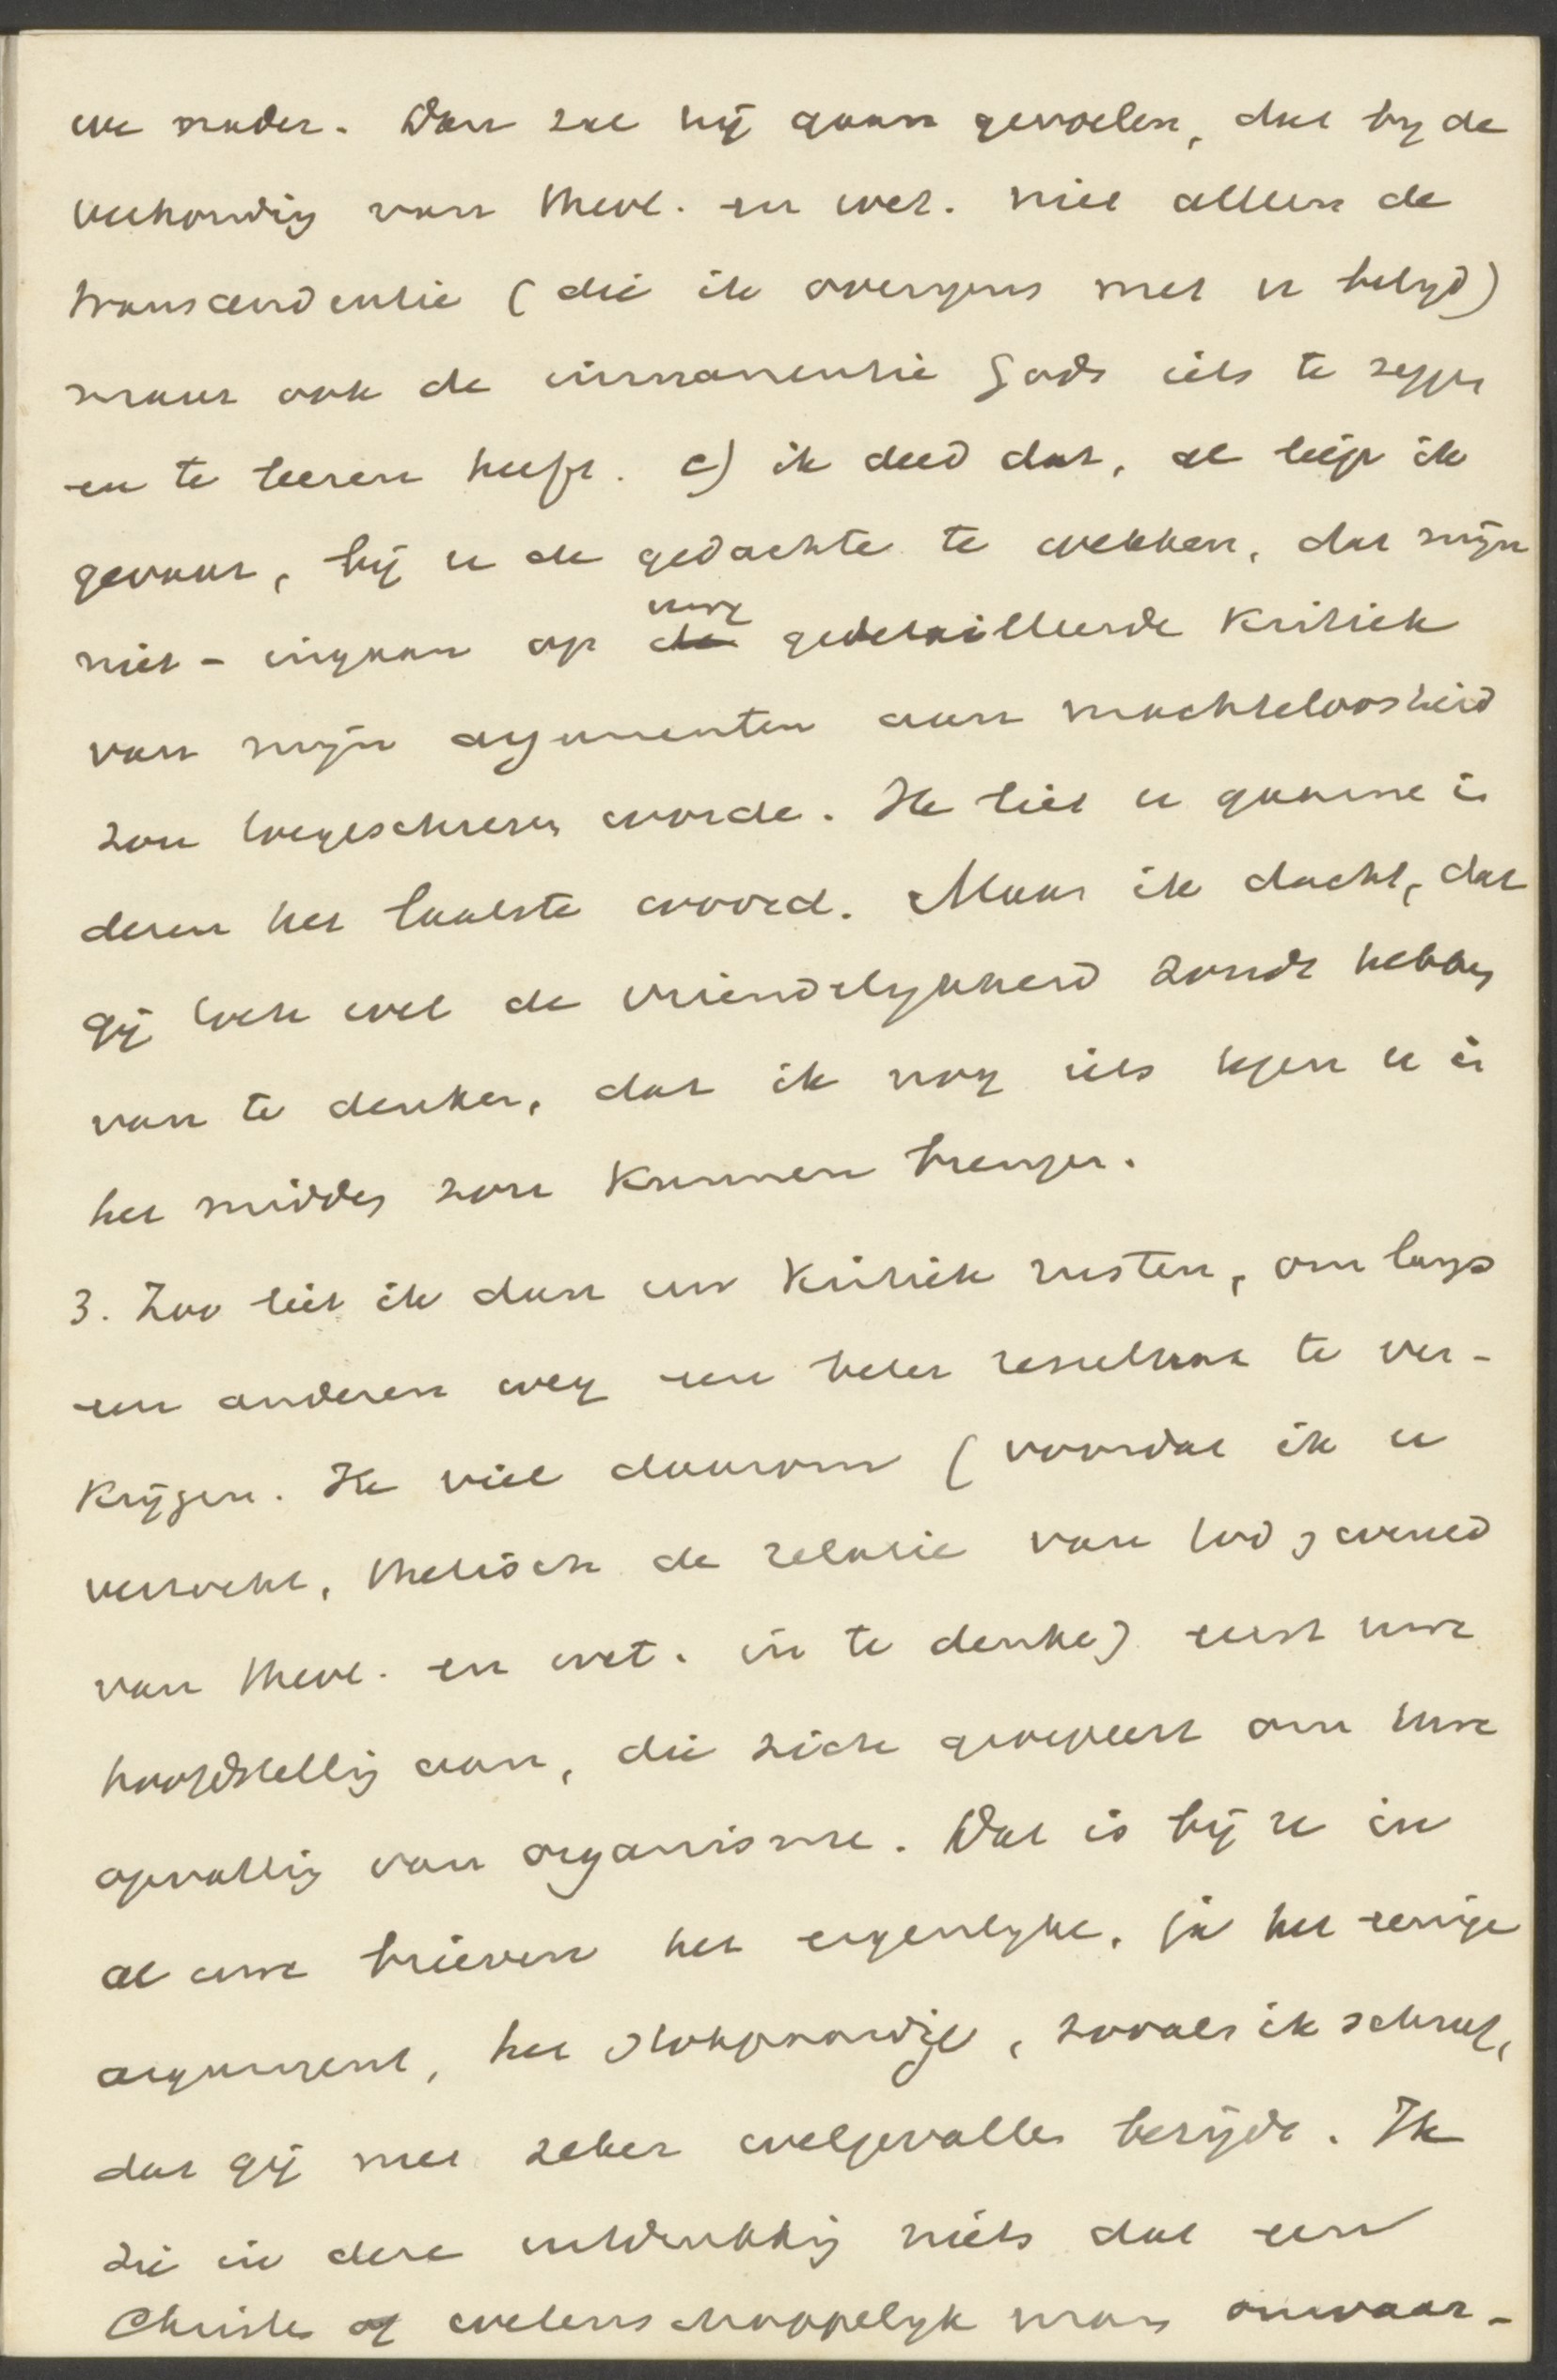 uw nader. Dan zal hij gaan gevoelen, dat by de
verhoudig van theol. en wet. niet alleen de
transcendentie (die ik overigens met u belyd)
maar ook de immanentie Gods iets te zeggen
en te leeren heeft. c) ik deed dat, al liep ik
gevaar, bij u de gedachte te wekken, dat mijn
niet-ingaan op uwe gedetailleerde kritiek
van mijn argumenten aan machteloosheid
zou toegeschreven worde. Ik liet u gaarne i
deren het laatste woord. Maar ik dacht, dat
gij toch wel de vriendelykheid zoudt hebben
van te denken, dat ik nog iets tegen u i
het midden zou kunnen brengen.
3. Zoo liet ik dan uw kritiek rusten, om langs
een anderen weg een beter resultaat te ver-
krijgen. Ik viel daarom (voordat ik u
verzocht, thetisch de relatie van
van theol. en wet. in te denke) eerst uwe
hoofdstellig aan, die zich groepeert om uwe
opvattig van organisme. Dat is bij u in
al uwe brieven het eigenlyke, ja het eenige
argument, het stokpaardje, zooals ik schreef,
dat gij met zeker welgevallen berijdt. Ik
zie in deze uitdrukkig niets dat een
Christen of wetenschappelyk man onwaar-